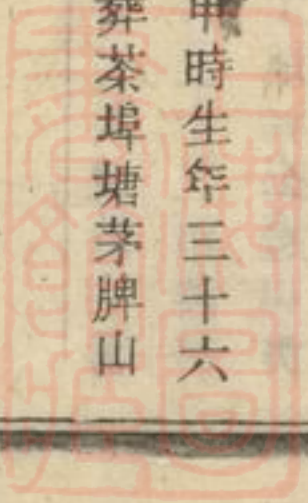 申時生年三十六
葬茶埠塘茅牌山